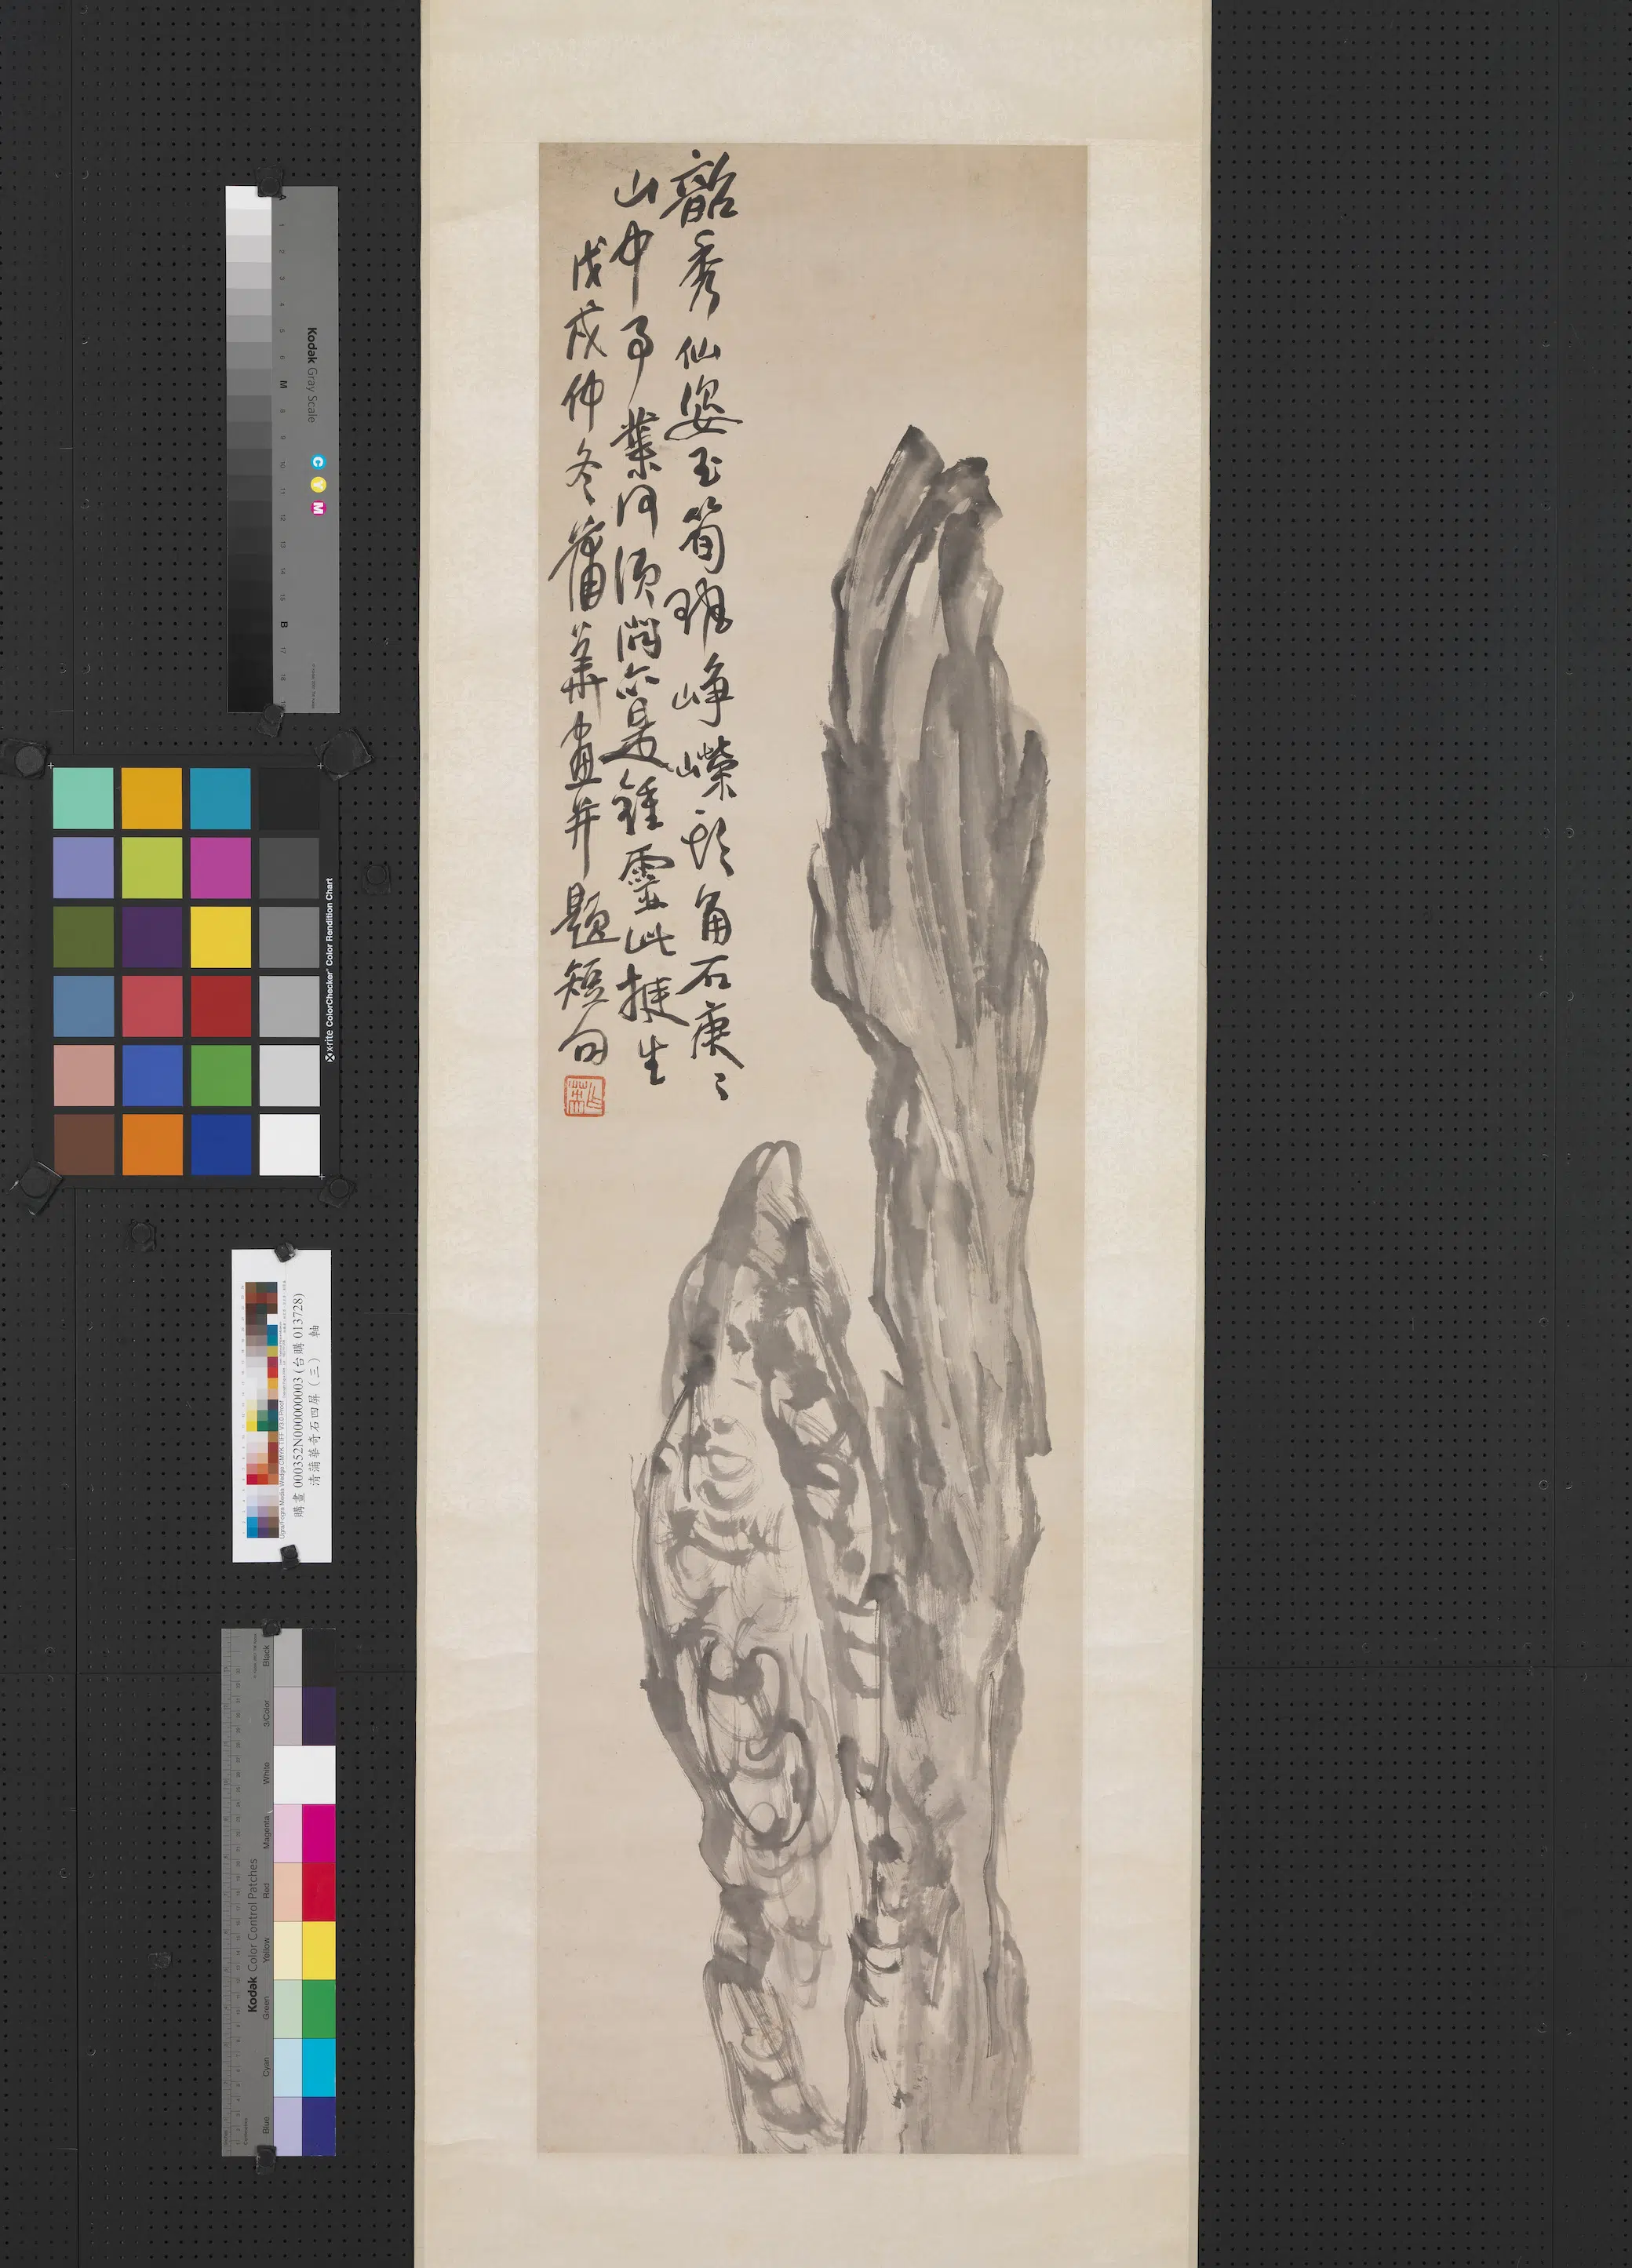 韶秀仙姿玉筍班崢嶸頭角石庚々
山中事業何須問亦是鍾靈此挺生
戊戌仲冬蒲華畫并題短句
Kodak Gray Scale
C
Y
M
A 1 2 3 4 5 6 M 8 9 10 11 12 13 14 15 B 17 18
x-rite ColorChecker Color Rendition Chart
購畫 000352N000000003 (台購 013728)
清蒲華奇石四屏（三） 軸
Kodak Color Control Patches
Blue Cyan Green Yellow Red Magenta White 3/Color Black